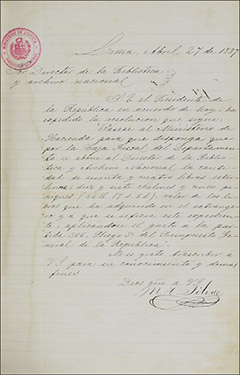 Lima Abril 27 de 1887
Sr Director de la Biblioteca
y archivo nacional
S. E. el Presidente de
la República en acuerdo de hoy, ha
expedido la resolución que sigue:
Pásese al Ministerio de
Hacienda para que disponga que
por la Caja Fiscal del Departamento
se abone al Director de la Biblio-
teca y archivo nacional la canti-
dad de sesenta y cuatro libras ester-
linas, diez y siete chelines y
peniques valor de los li-
bros que ha adquirido en el extranje-
ro y a que se refiere este expedien-
te, aplicándose el gasto a la par-
tida 306, Pliego del Presupuesto Ge-
neral de la República
Me es grato trascribir a
VS para su conocimiento y demas
fines
Dios gue a VS